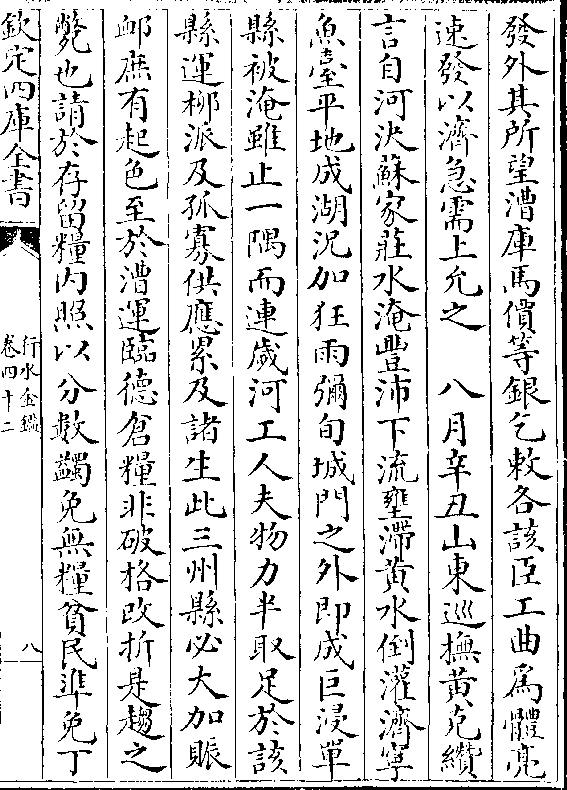 發外其所望漕庫馬價等銀乞敕各該臣工曲爲體亮
速發以濟急需上允之　八月辛丑山東巡撫黄克纘
言自河決蘇家莊水淹豐沛下流壅滯黄水倒灌濟寧
魚臺平地成湖況加狂雨彌旬城門之外即成巨浸單
縣被淹雖止一隅而連歲河工人夫物力半取足於該
縣運柳派及孤寡供應累及諸生此三州縣必大加賑
䘏庶有起色至於漕運臨德倉糧非破格改折是趨之
斃也請於存留糧内照以分數蠲免無糧貧民準免丁
欽定四庫全書
行水金鑑
卷四十二
八